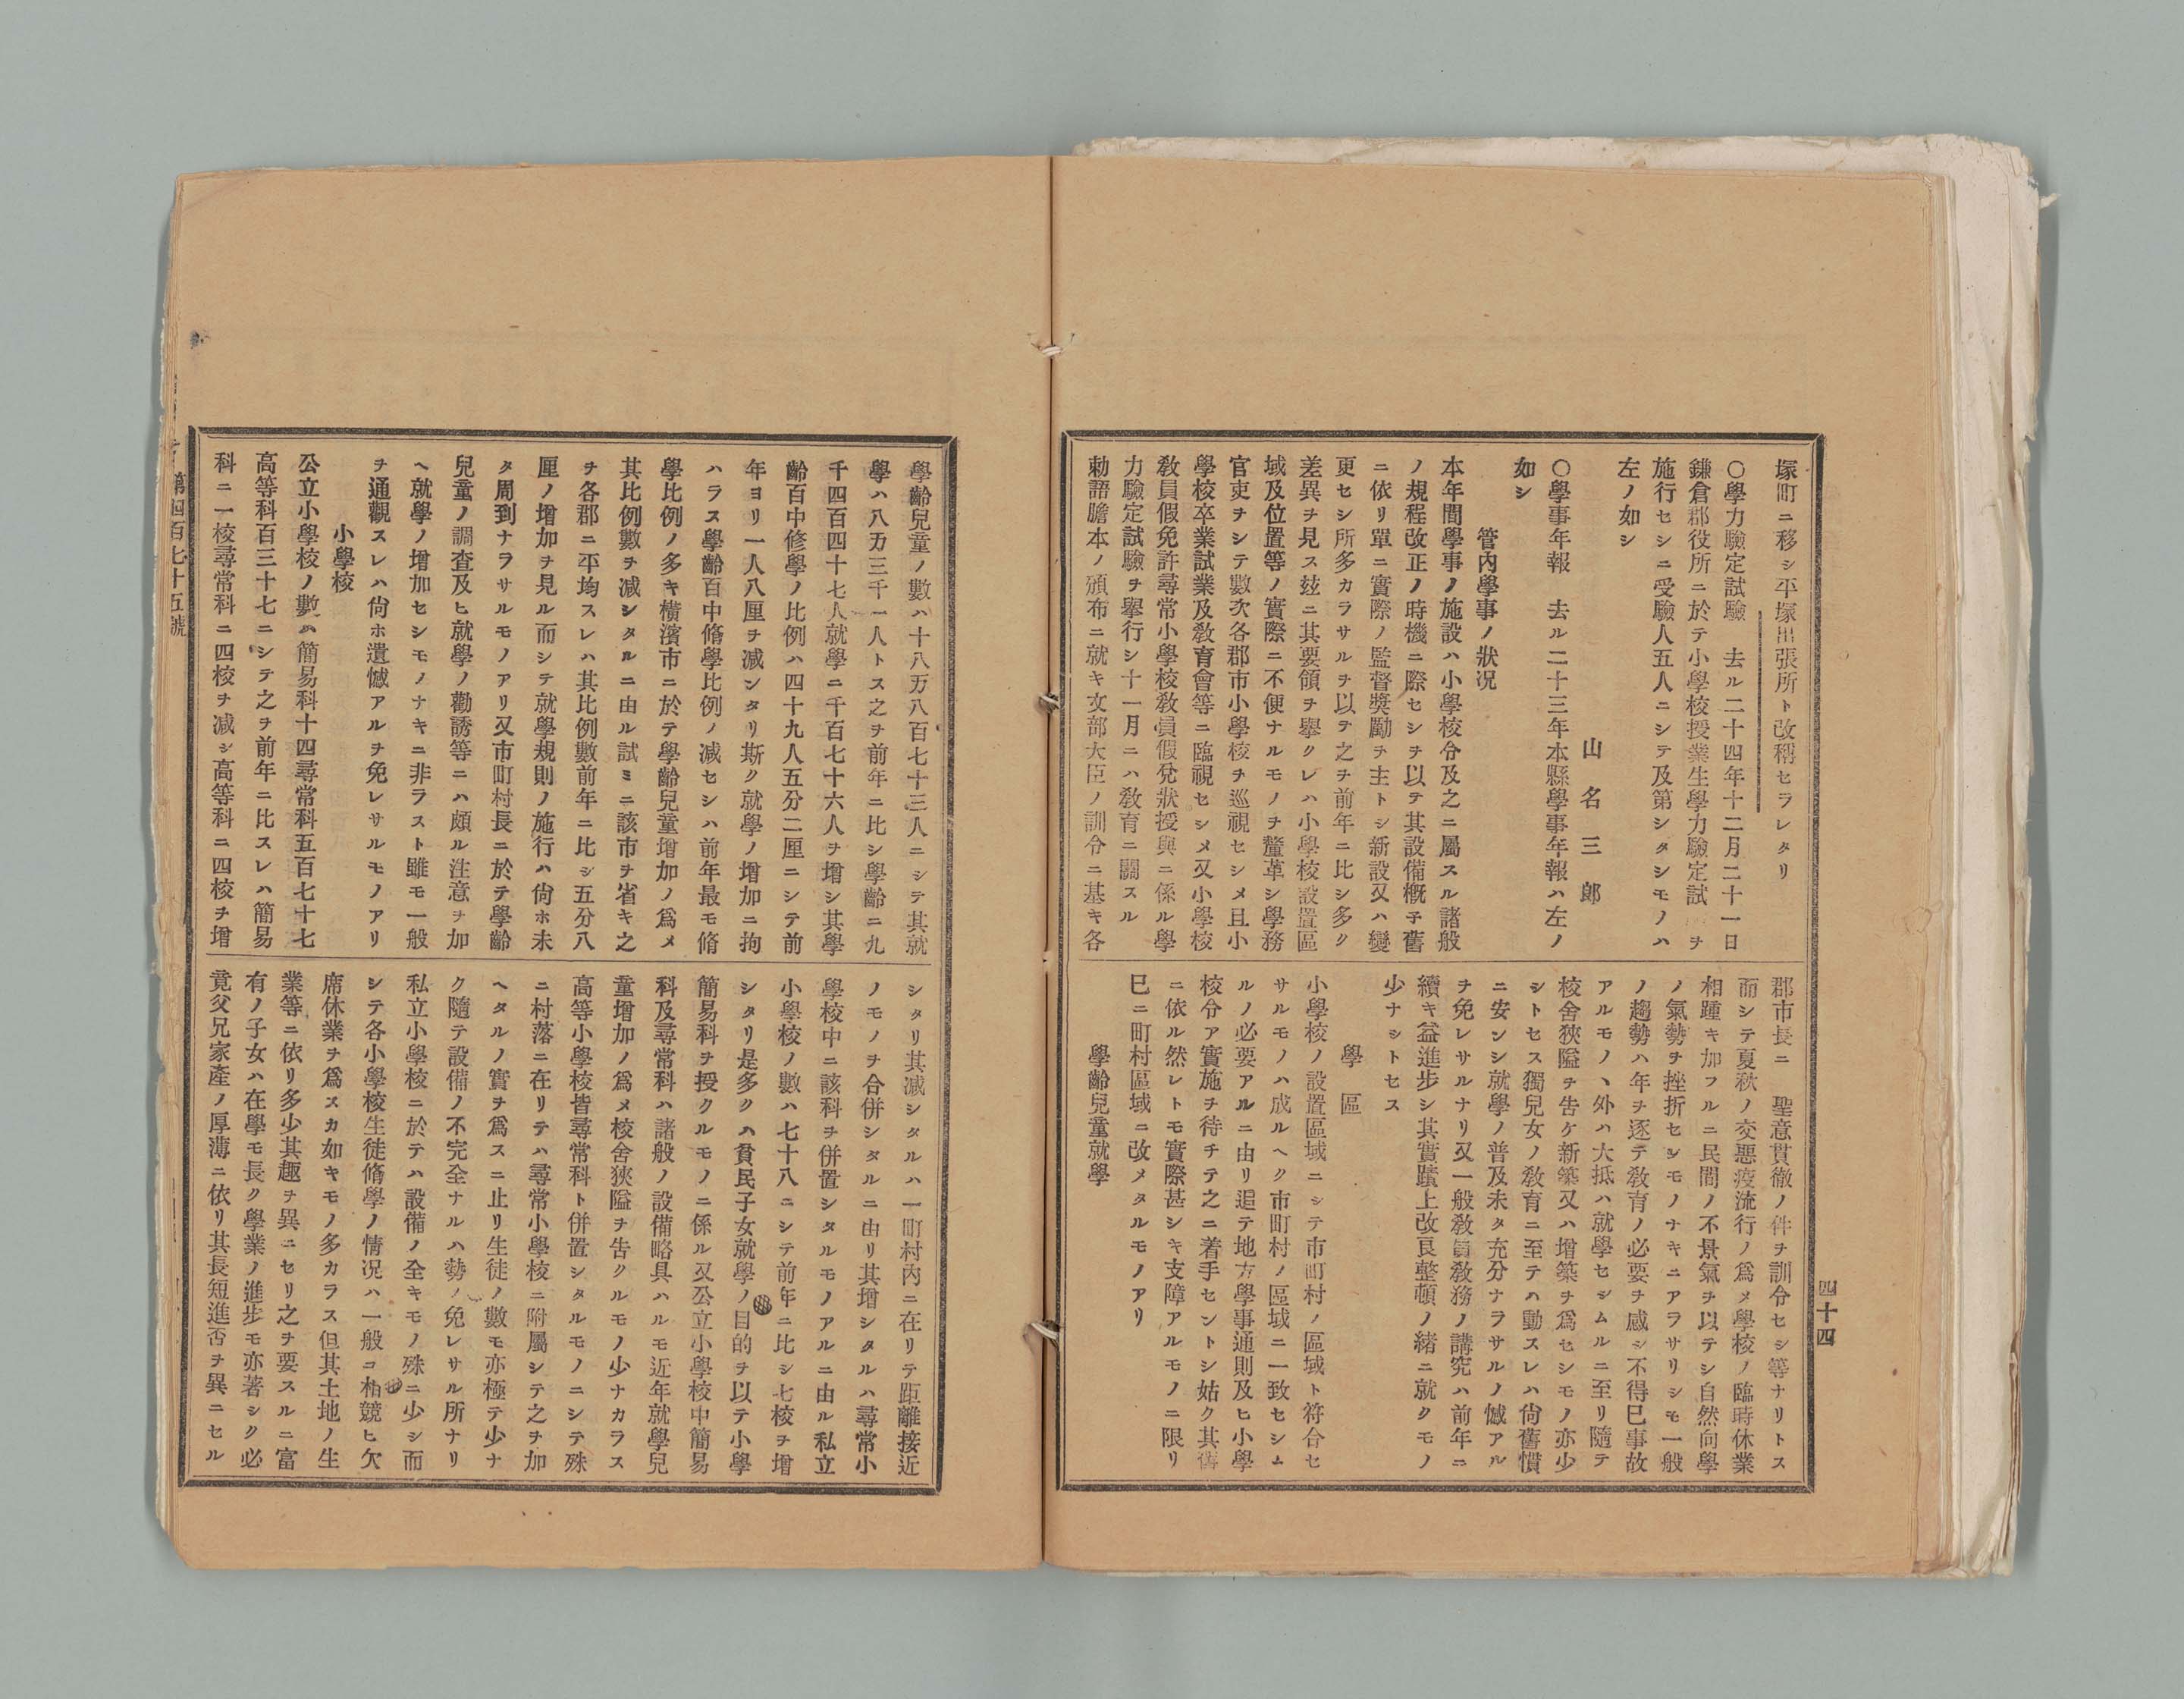 塚町ニ移シ平塚出張所ト改稱セラレタリ
〇學力驗定試驗　去ル二十四年十二月二十一日
鎌倉郡役所ニ於テ小學校授業生學力驗定試　ヲ
施行セシニ受驗人五人ニシテ及第シタシモノハ
左ノ如シ
山名三郎
〇學事年報　去ル二十三年本縣學事年報ハ左ノ
如シ
管内學事ノ狀況
本年間學事ノ施設ハ小學校令及之ニ屬スル諸般
ノ規程改正ノ時機ニ際セシヲ以テ其設備概子舊
ニ依リ單ニ實際ノ監督奬勵ヲ主トシ新設又ハ變
更セシ所多カラサルヲ以テ之ヲ前年ニ比シ多ク
差異ヲ見ス玆ニ其要領ヲ擧クレハ小學校設置區
域及位置等ノ實際ニ不便ナルモノヲ釐革シ學務
官吏ヲシテ數次各郡市小學校ヲ巡視セシメ且小
學校卒業試業及敎育會等ニ臨視セシメ又小學校
敎員假免許尋常小學校敎員假免狀授與ニ係ル學
力驗定試驗ヲ擧行シ十一月ニハ敎育ニ關スル
勅語謄本ノ頒布ニ就キ文部大臣ノ訓令ニ基キ各
郡市長ニ　聖意貫徹ノ件ヲ訓令セシ等ナリトス
而シテ夏秋ノ交惡疫流行ノ爲メ學校ノ臨時休業
相踵キ加フルニ民間ノ不景氣ヲ以テシ自然向學
ノ氣勢ヲ挫折セシモノナキニアラサリシモ一般
ノ趨勢ハ年ヲ逐テ敎育ノ必要ヲ感シ不得已事故
アルモノヽ外ハ大抵ハ就學セシムルニ至リ隨テ
校舍狹隘ヲ吿ケ新築又ハ增築ヲ爲セシモノ亦少
シトセス獨兒女ノ敎育ニ至テハ動スレハ尙舊慣
ニ安ンシ就學ノ普及未タ充分ナラサルノ憾アル
ヲ免レサルナリ又一般敎員敎務ノ講究ハ前年ニ
續キ益進步シ其實蹟上改良整頓ノ緖ニ就クモノ
少ナシトセス
學區
小學校ノ設置區域ニシテ市町村ノ區域ト符合セ
サルモノハ成ルヘク市町村ノ區域ニ一致セシム
ルノ必要アルニ由リ追テ地方學事通則及ヒ小學
校令ア實施ヲ待チテ之ニ着手セントシ姑ク其舊
ニ依ル然レトモ實際甚シキ支障アルモノニ限リ
已ニ町村區域ニ改メタルモノアリ
學齡兒童就學
四十四
學齡兒童ノ數ハ十八万八百七十三人ニシテ其就
學ハ八万三千一人トス之ヲ前年ニ比シ學齡ニ九
千四百四十七人就學ニ千百七十六人ヲ增シ其學
齡百中修學ノ比例ハ四十九人五分二厘ニシテ前
年ヨリ一人八厘ヲ減ンタリ斯ク就學ノ增加ニ拘
ハラス學齡百中脩學比例ノ減セシハ前年最モ脩
學比例ノ多キ橫濱市ニ於テ學齡兒童增加ノ爲メ
其比例數ヲ減シタルニ由ル試ミニ該市ヲ省キ之
ヲ各郡ニ平均スレハ其比例數前年ニ比シ五分八
厘ノ增加ヲ見ル而シテ就學規則ノ施行ハ尙ホ未
タ周到ナラサルモノアリ又市町村長ニ於テ學齡
兒童ノ調査及ヒ就學ノ勸誘等ニハ頗ル注意ヲ加
ヘ就學ノ增加セシモノナキニ非ラスト雖モ一般
ヲ通觀スレハ尙ホ遺憾アルヲ免レサルモノアリ
小學校
公立小學校ノ數ハ簡易科十四尋常科五百七十七
高等科百三十七ニシテ之ヲ前年ニ比スレハ簡易
科ニ一校尋常科ニ四校ヲ減シ高等科ニ四校ヲ增
シタリ其減シタルハ一町村內ニ在リテ距離接近
ノモノヲ合併シタルニ由リ其增シタルハ尋常小
學校中ニ該科ヲ併置シタルモノアルニ由ル私立
小學校ノ數ハ七十八ニシテ前年ニ比シ七校ヲ增
シタリ是多クハ貧民子女就學ノ目的ヲ以テ小學
簡易科ヲ授クルモノニ係ル又公立小學校中簡易
科及尋常科ハ諸般ノ設備略具ハルモ近年就學兒
童增加ノ爲メ校舍狹隘ヲ吿クルモノ少ナカラス
高等小學校皆尋常科ト併置シタルモノニシテ殊
ニ村落ニ在リテハ尋常小學校ニ附屬シテ之ヲ加
ヘタルノ實ヲ爲スニ止リ生徒ノ數モ亦極テ少ナ
ク隨テ設備ノ不完全ナルハ勢ノ免レサル所ナリ
私立小學校ニ於テハ設備ノ全キモノ殊ニ少シ而
シテ各小學校生徒脩學ノ情況ハ一般コ相競ヒ欠
席休業ヲ爲スカ如キモノ多カラス但其土地ノ生
業等ニ依リ多少其趣ヲ異ニセリ之ヲ要スルニ富
有ノ子女ハ在學モ長ク學業ノ進步モ亦著シク必
竟父兄家產ノ厚薄ニ依リ其長短進否ヲ異ニセル
第四百七十五號